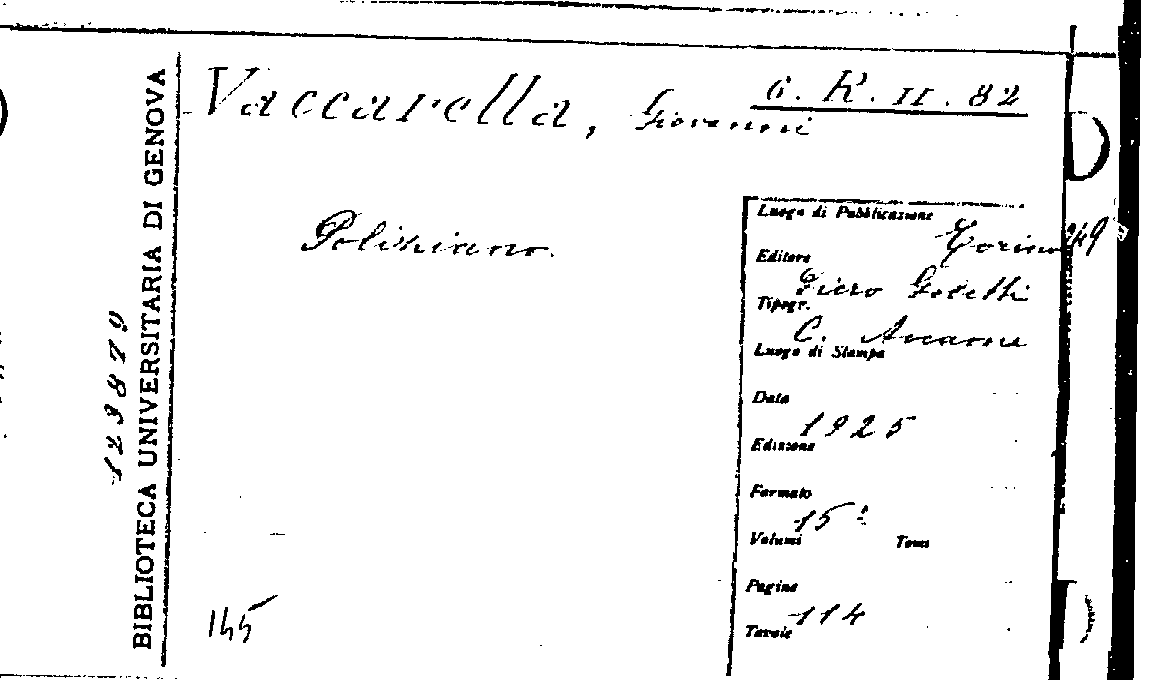 6. R. II. 82
Vaccarella, Giovanni
Poliziano.
Luogo di Pubblicazione
Torino
Editore
Piero Gobetti
Tipogr.
C. Accame
Luogo di Stampa
Data
1925
Edizione
Formato
15º
Volumi Tomi
Pagine
114
Tavole
145
BIBLIOTECA UNIVERSITARIA DI GENOVA
123879